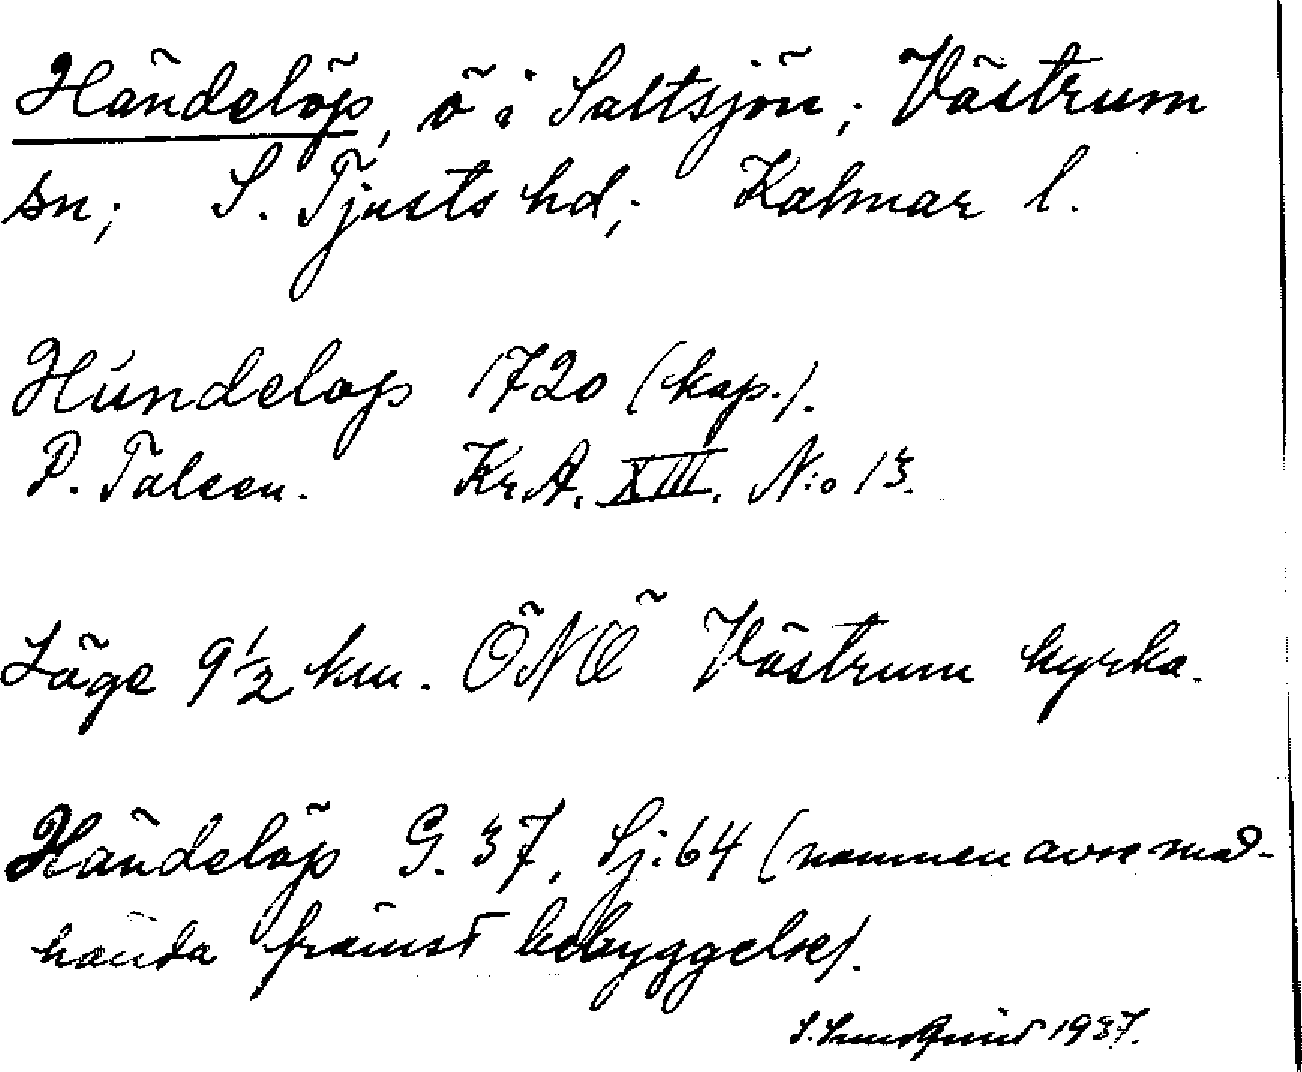 Händelöp, ö i Saltsjön; Västrum
sn; S. Tjusts hd; Kalmar l.
Húndelop 1720 (kop.).
P. Táleen. Kr.A. XIII. N:o 13.
Läge 9½ km. ÖNÖ Västrum kyrka.
Händelöp G. 37, Sj. 64 (namnen avse må-
hända främst bebyggelse).
1937.